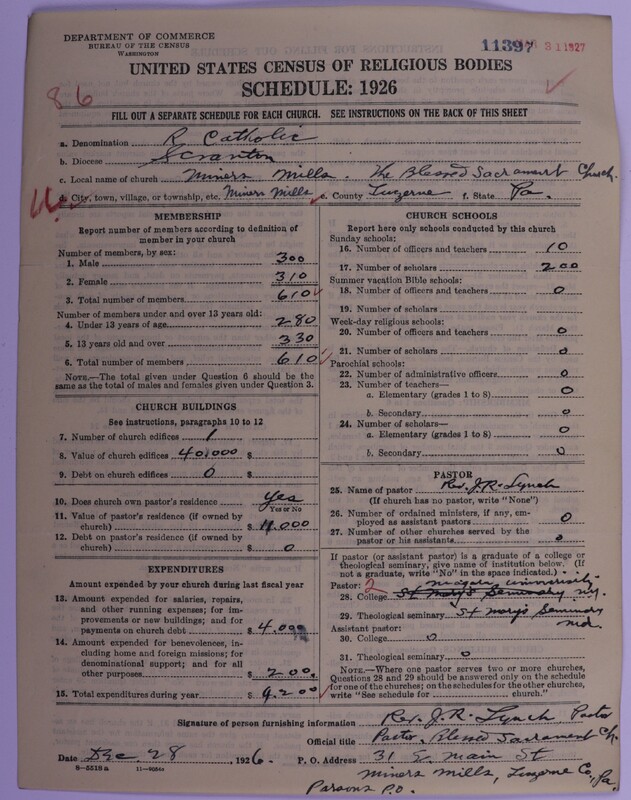 DEPARTMENT OF COMMERCE
BUREAU OF THE CENSUS
WASHINGTON
11397 3 1 1927
UNITED STATES CENSUS OF RELIGIOUS BODIES
SCHEDULE: 1926
86
FILL OUT A SEPARATE SCHEDULE FOR EACH CHURCH. SEE INSTRUCTIONS ON THE BACK OF THIS SHEET
a. Denomination R. Catholic
b. Diocese Scranton
c. Local name of church Miners Mills. The Blessed Sacrament Church.
d. City, town, village, or township, etc. Miners Mills e. County Luzerne f. State Pa.
MEMBERSHIP
Report number of members according to definition of member in your church
Number of members, by sex:
1. Male 300
2. Female 310
3. Total number of members 610
Number of members under and over 13 years old:
4. Under 13 years of age 280
5. 13 years old and over 330
6. Total number of members 610
NOTE.—The total given under Question 6 should be the
same as the total of males and females given under Question 3.
CHURCH BUILDINGS
See instructions, paragraphs 10 to 12
7. Number of church edifices 1
8. Value of church edifices 40,000 $
9. Debt on church edifices 0 $
10. Does church own pastor's residence Yes
Yes or No
11. Value of pastor's residence (if owned by
church) $ 11,000
12. Debt on pastor's residence (if owned by
church) $ 0
EXPENDITURES
Amount expended by your church during last fiscal year
13. Amount expended for salaries, repairs,
and other running expenses; for im-
provements or new buildings; and for
payments on church debt $ 4,000
14. Amount expended for benevolences, in-
cluding home and foreign missions; for
denominational support; and for all
other purposes $ 200.
15. Total expenditures during year $ 4,200
CHURCH SCHOOLS
Report here only schools conducted by this church
Sunday schools:
16. Number of officers and teachers 10
17. Number of scholars 200
Summer vacation Bible schools:
18. Number of officers and teachers 0
19. Number of scholars
Week-day religious schools:
20. Number of officers and teachers 0
21. Number of scholars 0
Parochial schools:
22. Number of administrative officers 0
23. Number of teachers—
a. Elementary (grades 1 to 8) 0
b. Secondary 0
24. Number of scholars—
a. Elementary (grades 1 to 8) 0
b. Secondary 0
PASTOR
25. Name of pastor Rev. J.R. Lynch
(If church has no pastor, write "None")
26. Number of ordained ministers, if any, em-
ployed as assistant pastors 0
27. Number of other churches served by the
pastor or his assistants 0
If pastor (or assistant pastor) is a graduate of a college or
theological seminary, give name of institution below. (If
not a graduate, write "No" in the space indicated.)
Pastor: 2 Niagara University
28. College St Mary's Seminary N.Y.
29. Theological seminary St Mary's Seminary
Md.
Assistant pastor:
30. College 0
31. Theological seminary 0
NOTE.—Where one pastor serves two or more churches,
Questions 28 and 29 should be answered only on the schedule
for one of the churches; on the schedules for the other churches,
write "See schedule for church."
Signature of person furnishing information Rev. J.R. Lynch Pastor
Official title Pastor. Blessed Sacrament Ch.
Date Dec. 28, 1926. P. O. Address 31 E Main St
8-5518a
Miners Mills, Luzerne Co., Pa.
Parsons P.O.